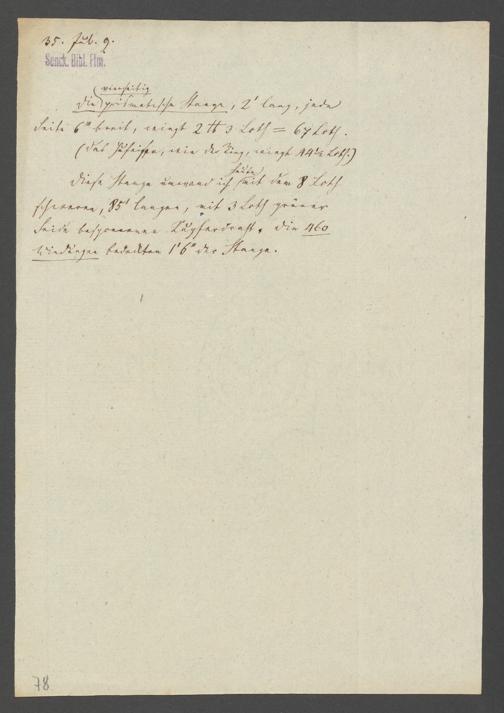 35. Feb. 9.
Senck. Bibl. Ffm.
(vierseitig
Die prismatische Stange, 2' lang, jede
Seite 6''' breit, wiegt 2 ℔ 3 Loth = 67 Loth.
(das Hufeisen, wie der Ring, wiegt 44½ Loth.)
heute
Diese Stange umwand ich mit dem 8 Loth
schweren, 85' langen, mit 3 Loth grüner
Seide besponnenen Kupferdraht. Die 460
Windungen bedeckten 1' 6'' der Stange.
78